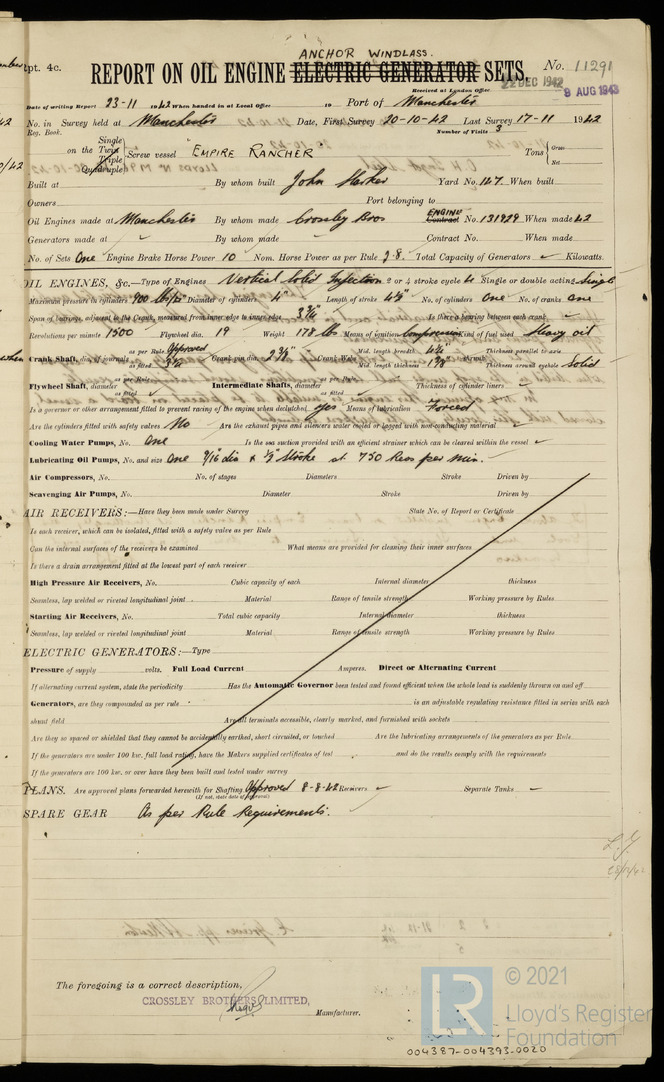 Rpt. 4c.
ANCHOR WINDLASS.
REPORT ON OIL ENGINE ELECTRIC GENERATOR SETS.
No. 11291
Received at London Office
22 DEC 1942
9 AUG 1943
Date of writing Report 23-11 1942 When handed in at Local Office 19 Port of Manchester
No. in Survey held at Manchester Date, First Survey 20-10-42 Last Survey 17-11 1942
Reg. Book.
Number of Visits 3
Single
on the Twin
Triple
Quadruple
Screw vessel "EMPIRE RANCHER"
Tons Gross
Net
Built at By whom built John Harker Yard No. 147 When built
Owners Port belonging to
Oil Engines made at Manchester By whom made Crossley Bros ENGINE Contract No. 131929 When made 42
Generators made at ✓ By whom made ✓ Contract No. When made
No. of Sets One Engine Brake Horse Power 10 Nom. Horse Power as per Rule 2.8. Total Capacity of Generators ✓ Kilowatts.
OIL ENGINES, &c.—Type of Engines Vertical Solid Injection 2 or 4 stroke cycle 4 Single or double acting Single
Maximum pressure in cylinders 900 lbs/□" Diameter of cylinders 4" Length of stroke 4½" No. of cylinders One No. of cranks One
Span of bearings, adjacent to the Crank, measured from inner edge to inner edge 3¾" Is there a bearing between each crank ✓
Revolutions per minute 1500 Flywheel dia. 19 Weight 178 lbs Means of ignition Compression Kind of fuel used Heavy oil
Crank Shaft, dia. of journals as per Rule Approved as fitted Crank pin dia. Crank Webs Mid. length breadth Mid. length thickness Thickness parallel to axis Thickness around eyehole Solid
Flywheel Shaft, diameter as per Rule as fitted ✓ Intermediate Shafts, diameter as per Rule as fitted ✓ Thickness of cylinder liners ✓
Is a governor or other arrangement fitted to prevent racing of the engine when declutched Yes Means of lubrication Forced
Are the cylinders fitted with safety valves No Are the exhaust pipes and silencers water cooled or lagged with non-conducting material ✓
Cooling Water Pumps, No. One Is the sea suction provided with an efficient strainer which can be cleared within the vessel ✓
Lubricating Oil Pumps, No. and size One 9/16 dia x ½" Stroke at 750 Revs per min.
Air Compressors, No. No. of stages Diameters Stroke Driven by
Scavenging Air Pumps, No. Diameter Stroke Driven by
AIR RECEIVERS:—Have they been made under Survey State No. of Report or Certificate
Is each receiver, which can be isolated, fitted with a safety valve as per Rule
Can the internal surfaces of the receivers be examined What means are provided for cleaning their inner surfaces
Is there a drain arrangement fitted at the lowest part of each receiver
High Pressure Air Receivers, No. Cubic capacity of each Internal diameter thickness
Seamless, lap welded or riveted longitudinal joint Material Range of tensile strength Working pressure by Rules
Starting Air Receivers, No. Total cubic capacity Internal diameter thickness
Seamless, lap welded or riveted longitudinal joint Material Range of tensile strength Working pressure by Rules
ELECTRIC GENERATORS:—Type
Pressure of supply volts. Full Load Current Amperes. Direct or Alternating Current
If alternating current system, state the periodicity Has the Automatic Governor been tested and found efficient when the whole load is suddenly thrown on and off
Generators, are they compounded as per rule is an adjustable regulating resistance fitted in series with each
shunt field Are all terminals accessible, clearly marked, and furnished with sockets
Are they so spaced or shielded that they cannot be accidentally earthed, short circuited, or touched Are the lubricating arrangements of the generators as per Rule
If the generators are under 100 kw. full load rating, have the Makers supplied certificates of test and do the results comply with the requirements
If the generators are 100 kw. or over have they been built and tested under survey
PLANS. Are approved plans forwarded herewith for Shafting Approved 8-8-42 Receivers ✓ Separate Tanks ✓
(If not, state date of approval)
SPARE GEAR As per Rule Requirements.
The foregoing is a correct description,
CROSSLEY BROTHERS LIMITED,
Manufacturer.
LR © 2021
Lloyd's Register
Foundation
004387-004393-0020